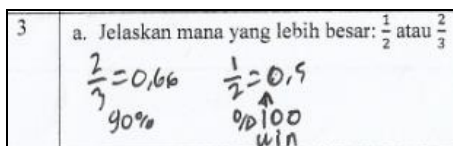 3 a. Jelaskan mana yang lebih besar: 1/2 atau 2/3
2/3 = 0,66 1/2 = 0,5
90% %100
win